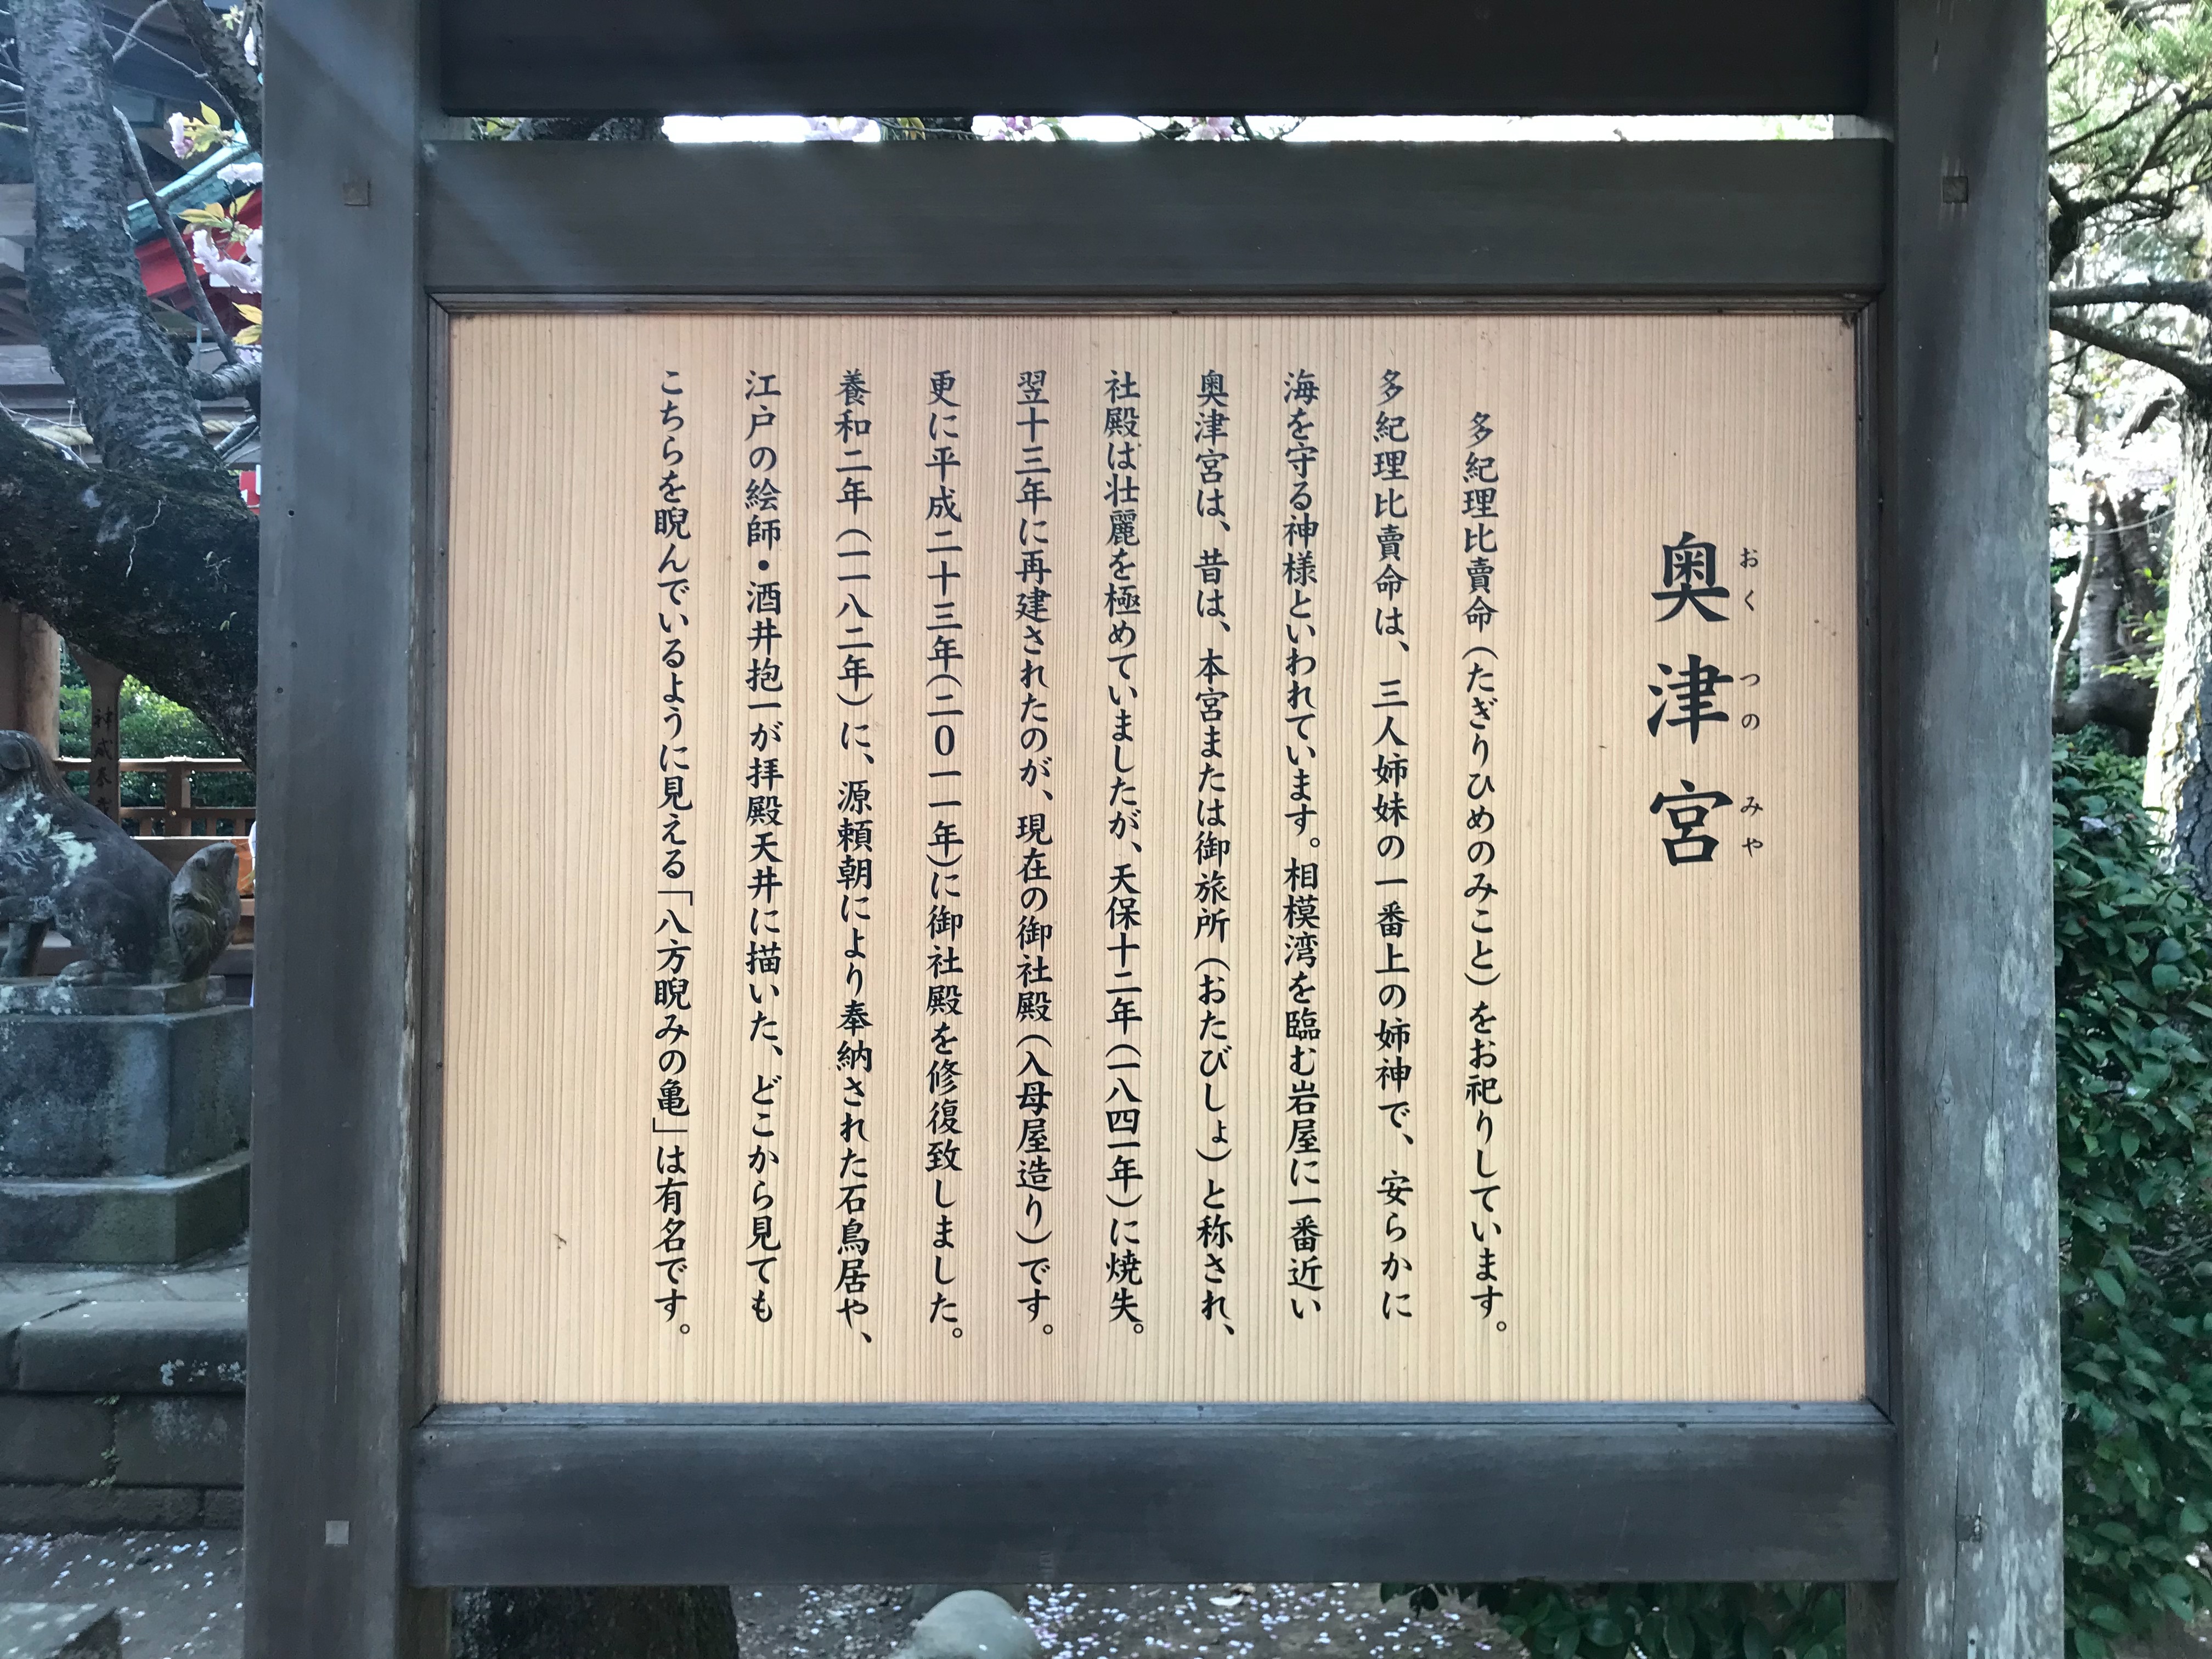 奥津宮
おくつのみや
多紀理比賣命（たぎりひめのみこと）をお祀りしています。
多紀理比賣命は、三人姉妹の一番上の姉神で、安らかに
海を守る神様といわれています。相模湾を臨む岩屋に一番近い
奥津宮は、昔は、本宮または御旅所（おたびしょ）と称され、
社殿は壮麗を極めていましたが、天保十二年（一八四一年）に焼失。
翌十三年に再建されたのが、現在の御社殿（入母屋造り）です。
更に平成二十三年（二０一一年）に御社殿を修復致しました。
養和二年（一一八二年）に、源頼朝により奉納された石鳥居や、
江戸の絵師・酒井抱一が拝殿天井に描いた、どこから見ても
こちらを睨んでいるように見える「八方睨みの亀」は有名です。